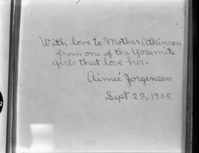 With love to Mother Atkinson
from one of the Yosemite
girls that love her.
Aimeé Jorgensen
Sept 23, 1905.